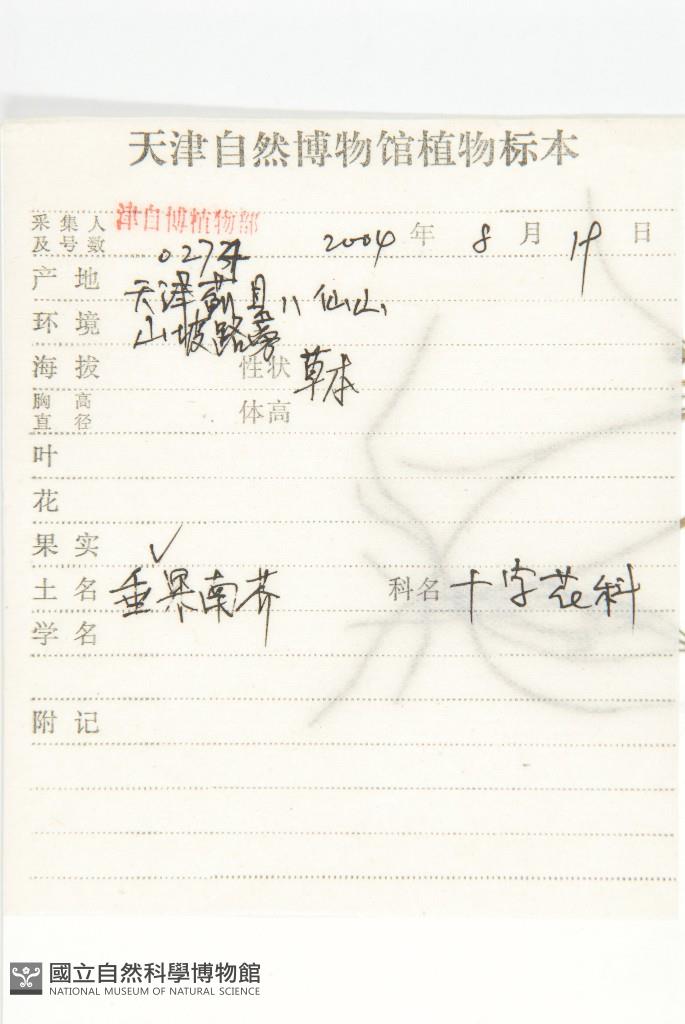 天津自然博物馆植物标本
采集人及号数 津自博植物部
2004 年 8 月 19 日
产地 天津蓟县八仙山
环境 山坡路旁
海拔 性状 草本
胸高直径 体高
叶
花
果实 ✓
土名 垂果南芥 科名 十字花科
学名
附记
國立自然科學博物館
NATIONAL MUSEUM OF NATURAL SCIENCE